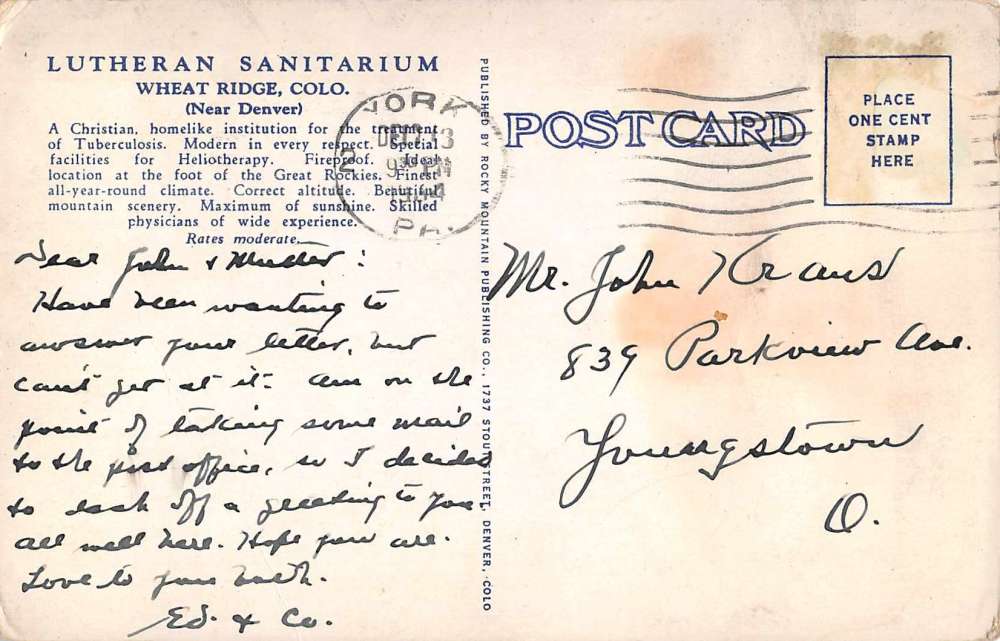 LUTHERAN SANITARIUM
WHEAT RIDGE, COLO.
(Near Denver)
A Christian, homelike institution for the treatment
of Tuberculosis. Modern in every respect. Special
facilities for Heliotherapy. Fireproof. Ideal
location at the foot of the Great Rockies. Finest
all-year-round climate. Correct altitude. Beautiful
mountain scenery. Maximum of sunshine. Skilled
physicians of wide experience.
Rates moderate.
Dear John & Mutter:
Have been wanting to
answer your letter, but
can't get at it. Am on the
point of taking some mail
to the post office, so I decided
to dash off a greeting to you
All well here. Hope you are.
Love to you both.
Ed. & Co.
PUBLISHED BY ROCKY MOUNTAIN PUBLISHING CO., 1737 STOUT STREET, DENVER, COLO
YORK
DEC 13
9 30 PM
PA.
POST CARD
PLACE
ONE CENT
STAMP
HERE
Mr. John Kraus
839 Parkview Ave.
Youngstown
O.